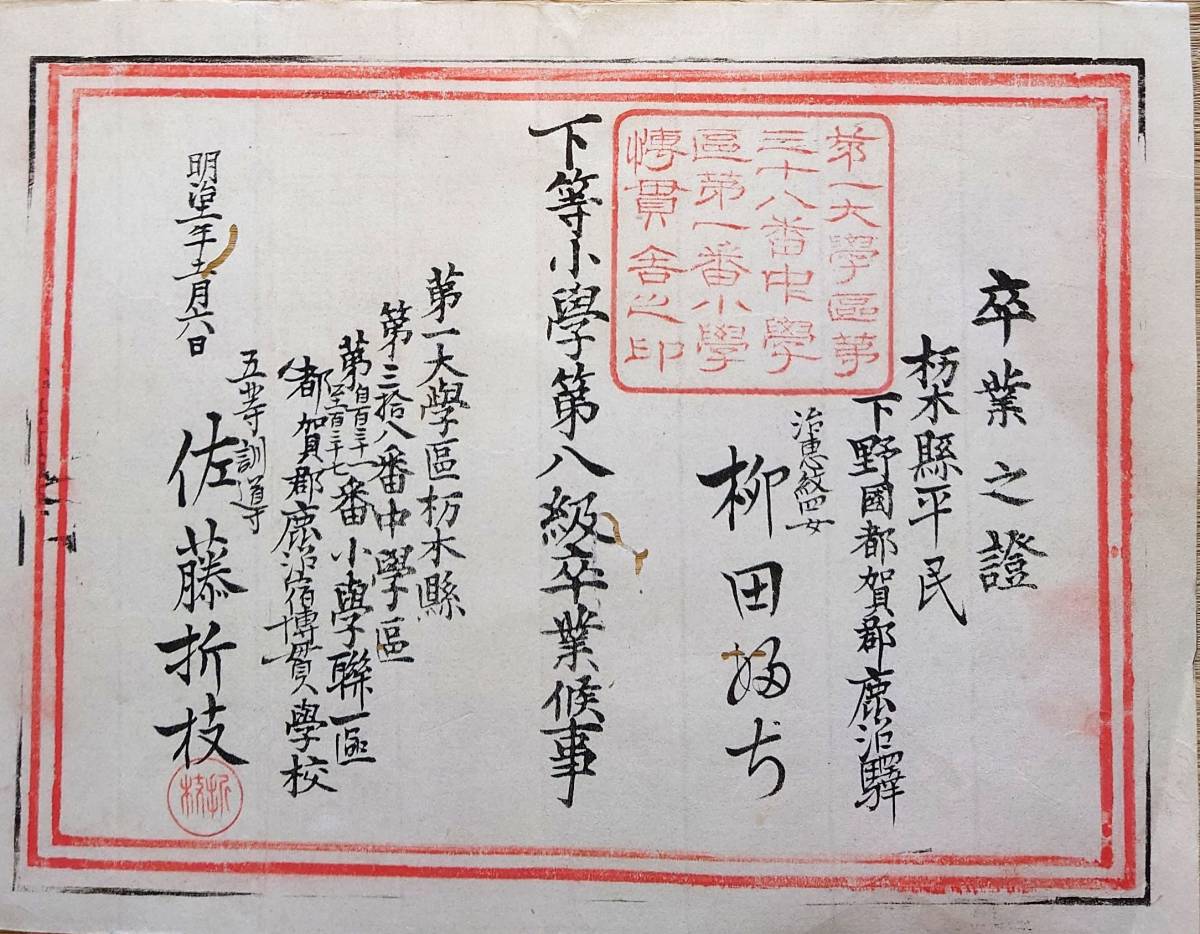 卒業之證
栃木縣平民
下野國都賀郡鹿沼驛
柳田
下等小學第八級卒業候事
第一大學區栃木縣
第三拾八番中學區
第自百三十一至百三十七番小學聯區
都賀郡鹿沼宿博貫學校
五等訓導
佐藤折枝
第一大學區第
三十八番中學
區第一番小學
博貫舍之印
折枝